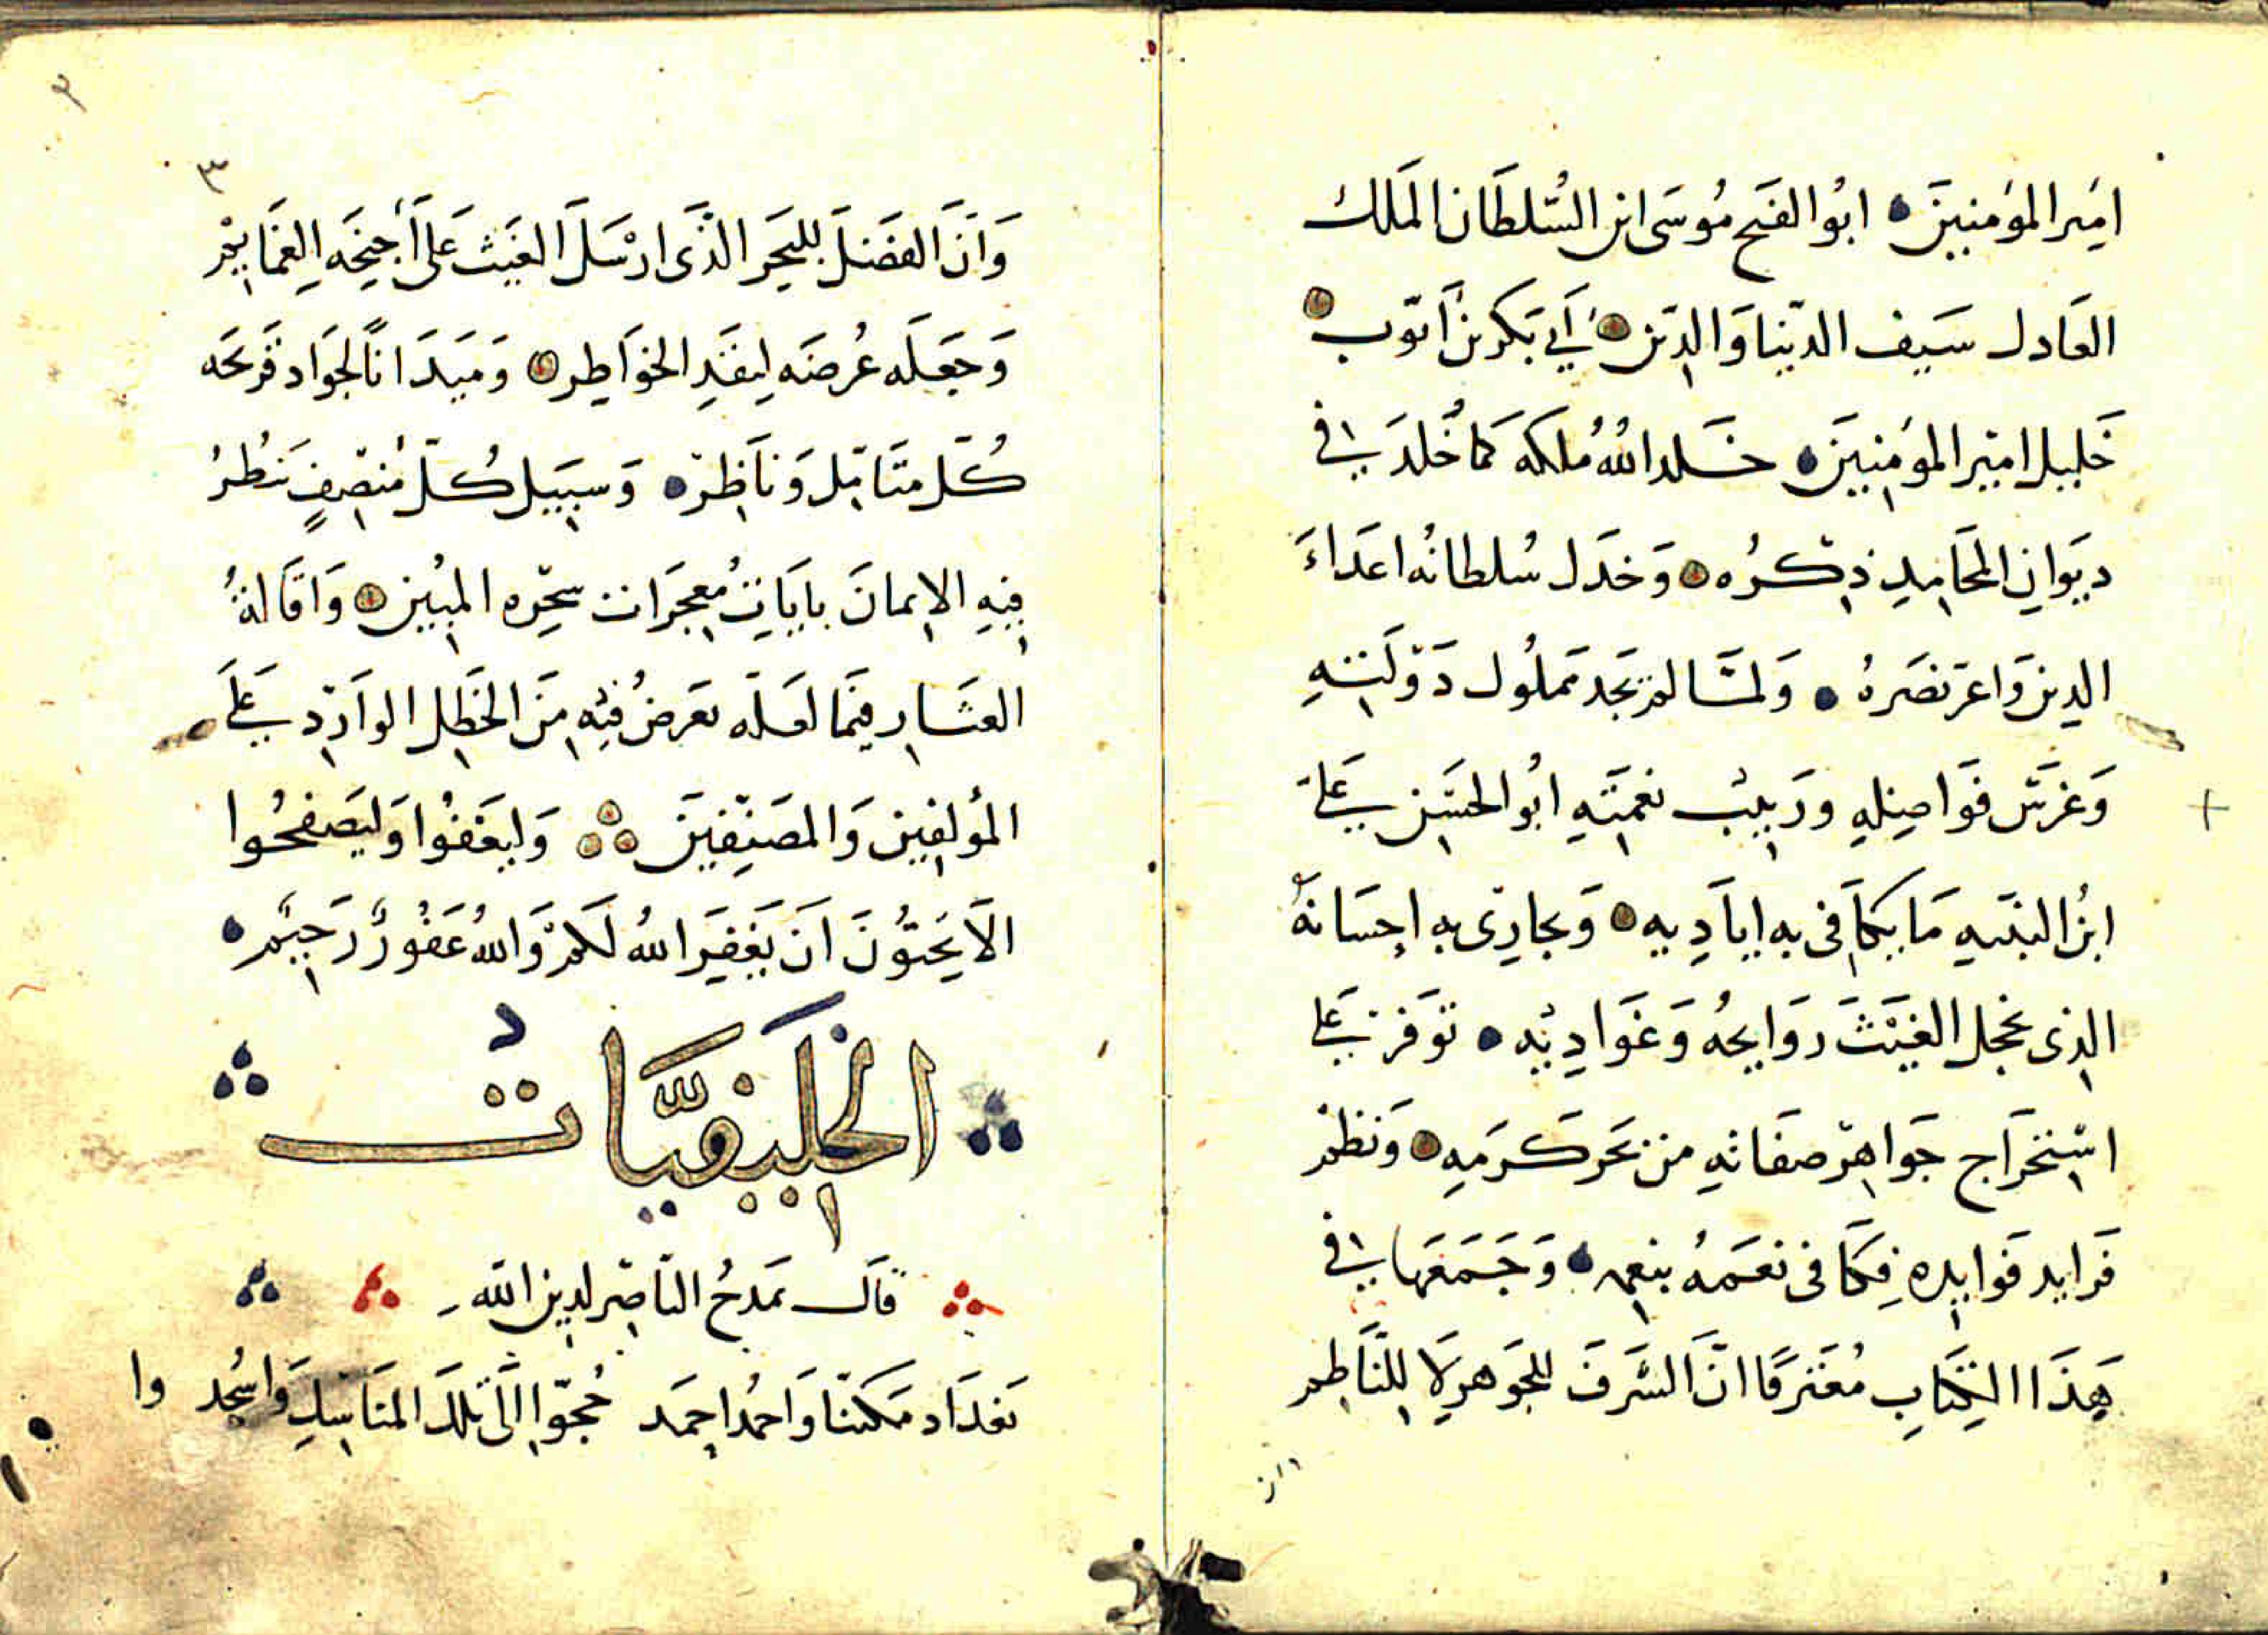 امير المومنين ابو الفتح موسى ابن السلطان الملك
العادل سيف الدنيا والدين ابي بكر بن ايوب
خليل امير المومنين خلد الله ملكه كما خلد في
ديوان المحامد ذكره وخذل سلطانه اعداء
الدين واعز نصره ولما لم يجد مملوك دولته
وغرس فواضله وربيب نعمته ابو الحسن علي
ابن النبيه ما يكافي به اياديه ويجازي به احسانه
الذي يخجل الغيث روايحه وغواديه توفر علي
استخراج جواهر صفاته من بحر كرمه ونظم
فرايد فوايده فكافى نعمه بنعمه وجمعها في
هذا الكتاب معترفا ان الشرف للجوهر لا للناظم
وان الفضل للبحر الذي ارسل الغيث على اجنحه الغمايم
وجعله عرضه لنقد الخواطر وميدانا لجواد قريحه
كل متامل وناظر وسبيل كل منصف ينظر
فيه الايمان بايات معجزات سحره المبين واقالة
العثار فيما لعله يعرض فيه من الخطل الوارد علي
المولفين والمصنفين وليعفوا وليصفحوا
الا يحبون ان يغفر الله لكم والله غفور رحيم
الخليفيات
قال يمدح الناصر لدين الله
بغداد مكتنا واحمد احمد حجوا الى تلك المناسك واسجدوا
٣